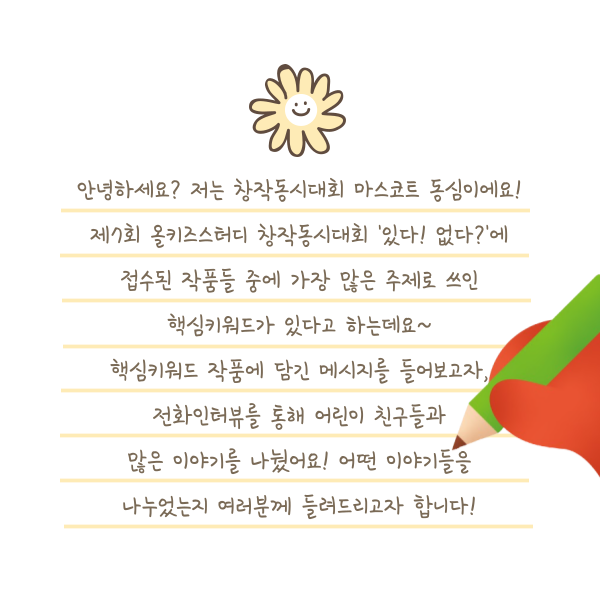 안녕하세요? 저는 창작동시대회 마스코트 동심이에요!
제7회 올키즈스터디 창작동시대회 '있다! 없다?'에
접수된 작품들 중에 가장 많은 주제로 쓰인
핵심키워드가 있다고 하는데요~
핵심키워드 작품에 담긴 메시지를 들어보고자,
전화인터뷰를 통해 어린이 친구들과
많은 이야기를 나눴어요! 어떤 이야기들을
나누었는지 여러분께 들려드리고자 합니다!